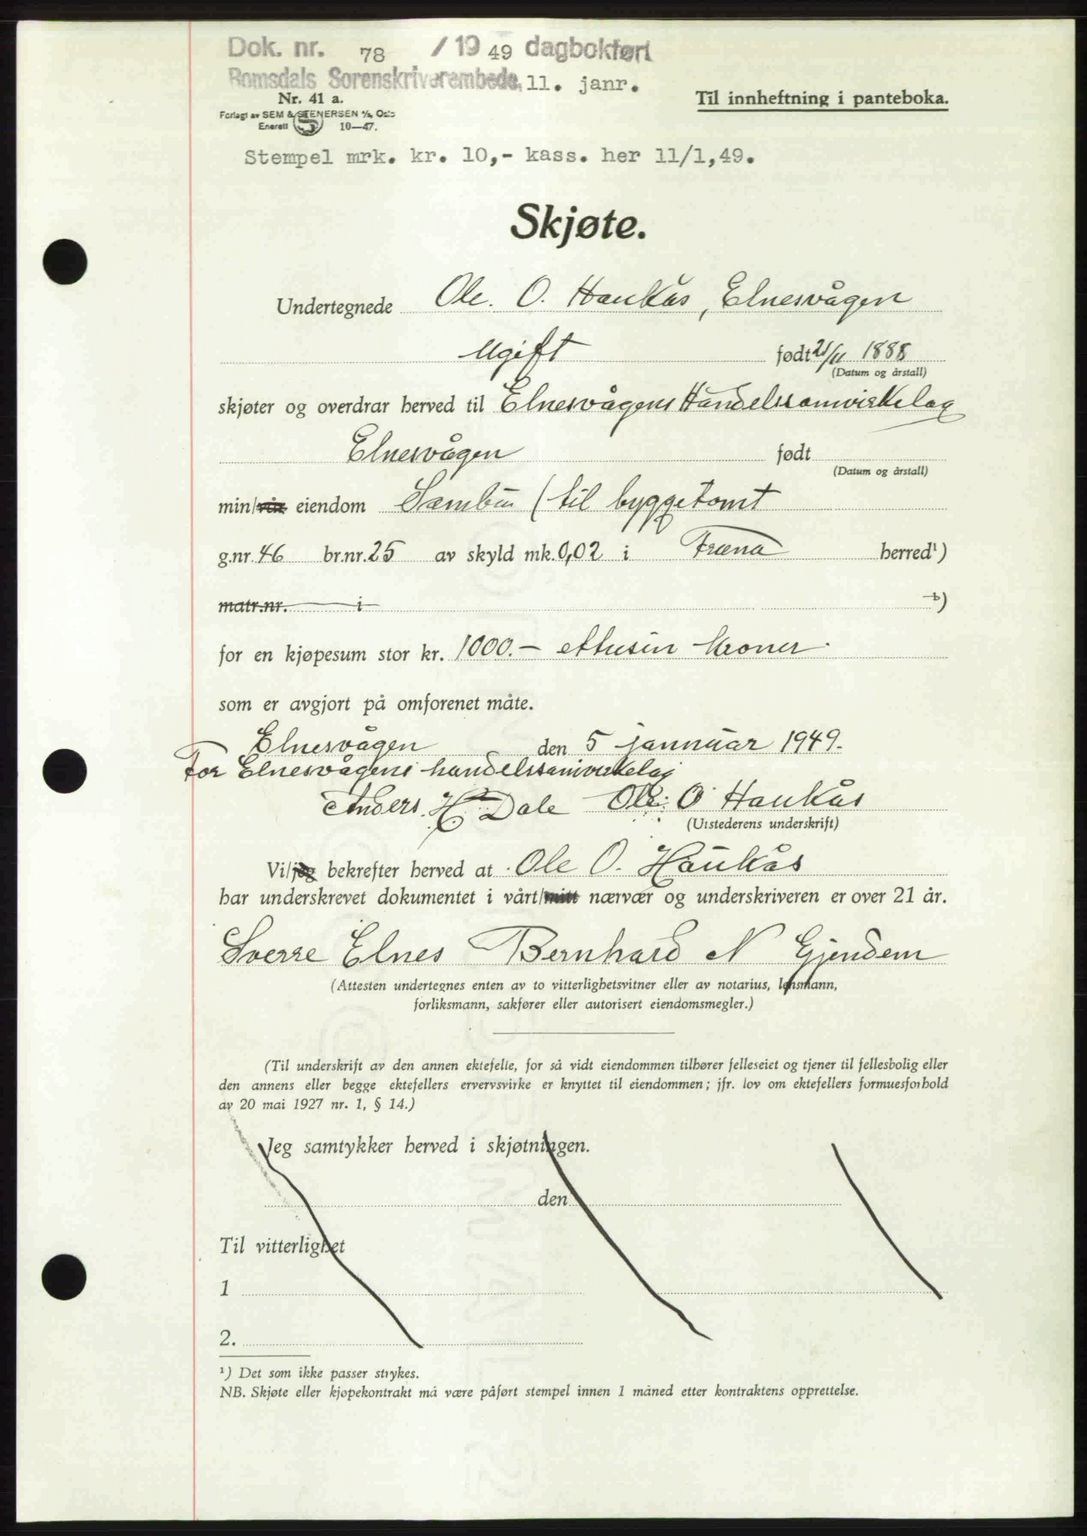 Dok. nr. 78 / 19 49 dagbokført
Romsdals Sorenskriverembede, 11. janr.
Nr. 41 a.
Til innheftning i panteboka.
Forlagt av SEM & STENERSEN A/s, Oslo
Enerett 10—47.
Stempel mrk. kr. 10,- kass. her 11/1,49.
Skjøte.
Undertegnede Ole. O. Haukås, Elnesvågen
Ugift født 21/11 1888
(Datum og årstall)
skjøter og overdrar herved til Elnesvågens Handelssamvirkelag
Elnesvågen født
(Datum og årstall)
min/vår eiendom Sambu (til byggetomt
g.nr. 46 br.nr. 25 av skyld mk. 0,02 i Fræna herred¹)
matr.nr. i ¹)
for en kjøpesum stor kr. 1000.— ettusin kroner.
som er avgjort på omforenet måte.
Elnesvågen den 5 januar 1949.
For Elnesvågens handelssamvirkelag
Anders. H. Dale Ole: O Haukås
(Utstederens underskrift)
Vi/jeg bekrefter herved at Ole O. Haukås
har underskrevet dokumentet i vårt/mitt nærvær og underskriveren er over 21 år.
Sverre Elnes Bernhard N Gjendem
(Attesten undertegnes enten av to vitterlighetsvitner eller av notarius, lensmann,
forliksmann, sakfører eller autorisert eiendomsmegler.)
(Til underskrift av den annen ektefelle, for så vidt eiendommen tilhører felleseiet og tjener til fellesbolig eller
den annens eller begge ektefellers ervervsvirke er knyttet til eiendommen; jfr. lov om ektefellers formuesforhold
av 20 mai 1927 nr. 1, § 14.)
Jeg samtykker herved i skjøtningen.
den
Til vitterlighet
1
2.
¹) Det som ikke passer strykes.
NB. Skjøte eller kjøpekontrakt må være påført stempel innen 1 måned etter kontraktens opprettelse.